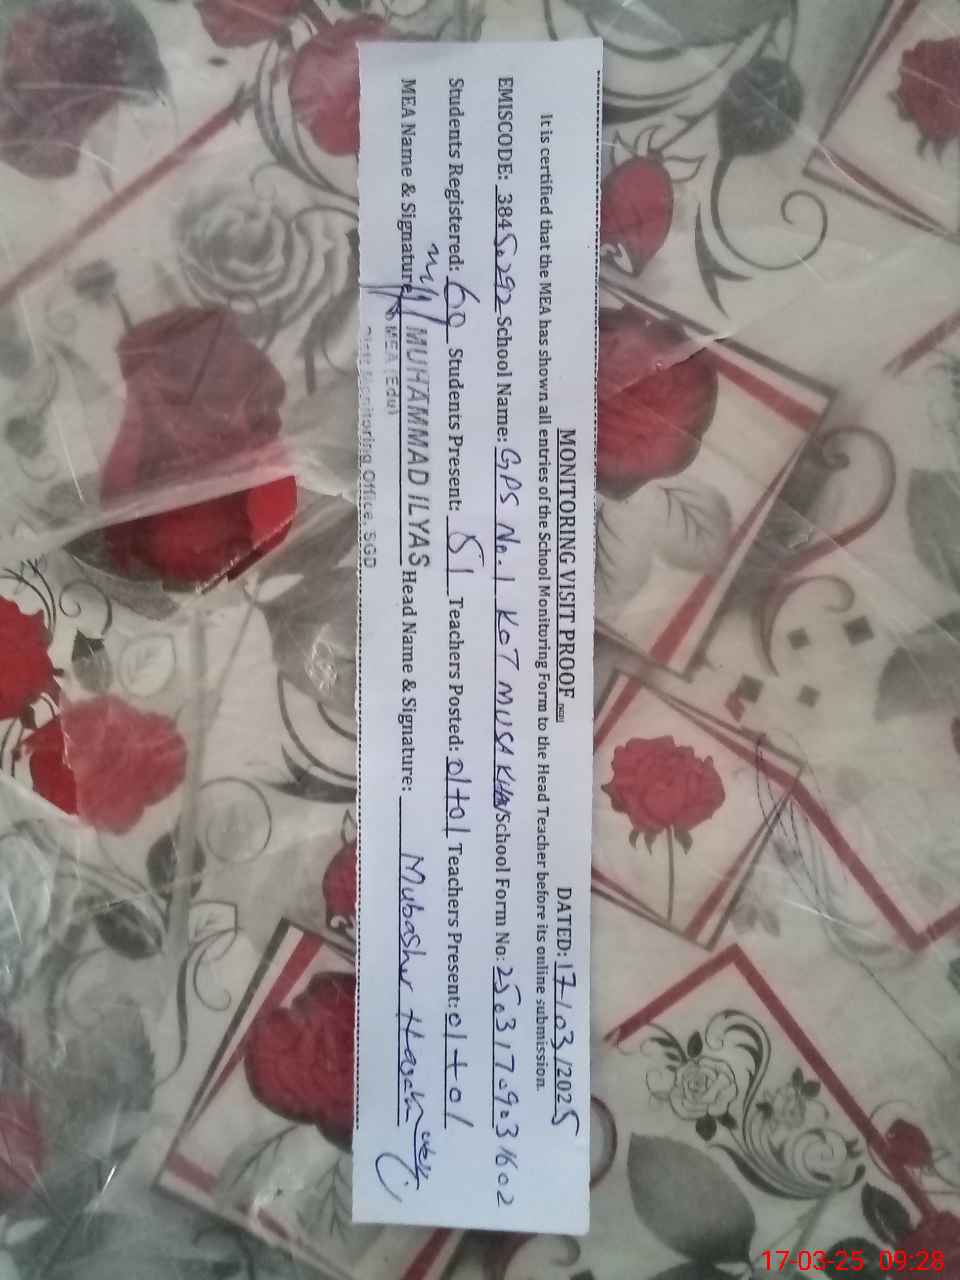 MONITORING VISIT PROOF DATED: 17/03/2025
It is certified that the MEA has shown all entries of the School Monitoring Form to the Head Teacher before its online submission.
EMISCODE: 38450292 School Name: GPS No.1 KOT MUSA KHAN School Form No: 25031709031602
Students Registered: 60 Students Present: 51 Teachers Posted: 01+01 Teachers Present: 01+01
MEA Name & Signature: MUHAMMAD ILYAS Head Name & Signature: Mubasher
MEA (Edu)
Distt Monitoring Office, SGD
17-03-25 09:28